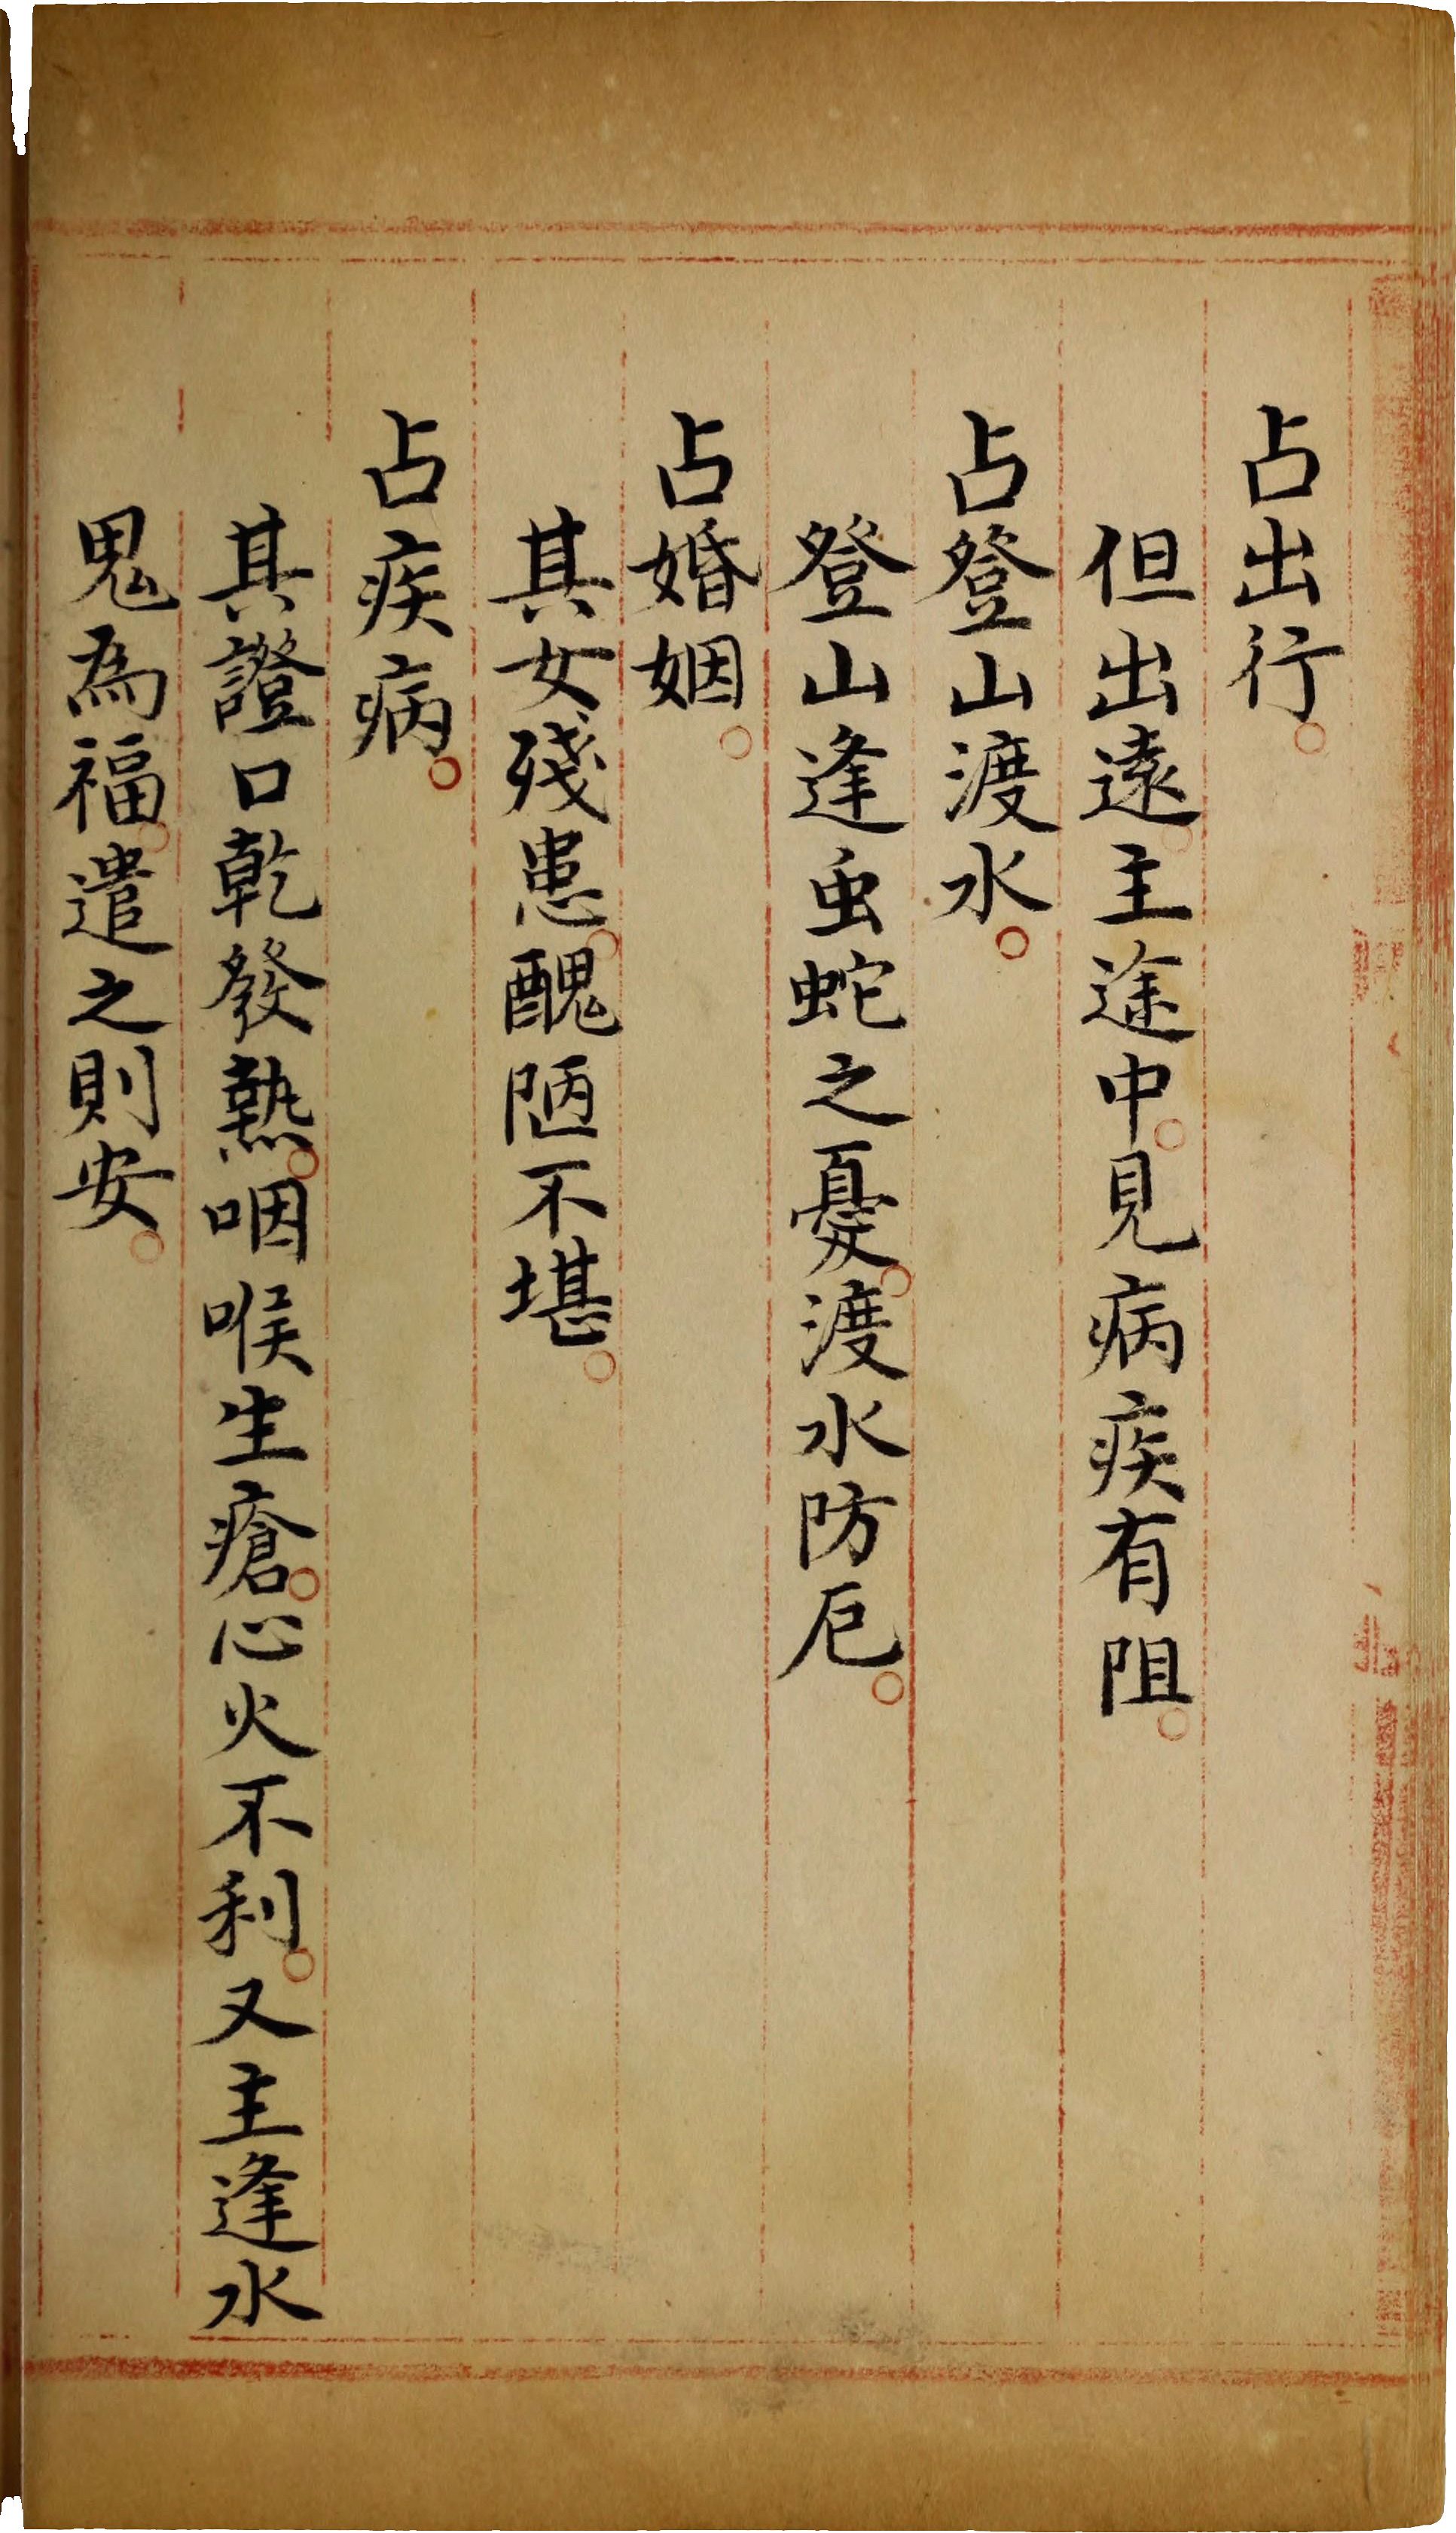 占出行。
但出遠。主途中。見病疾有阻。
占登山渡水。
登山逢虫蛇之憂。渡水防厄。
占婚姻。
其女殘患。醜陋不堪。
占疾病。
其證口乾發熱。咽喉生瘡。心火不利。又主逢水
鬼為福。遣之則安。